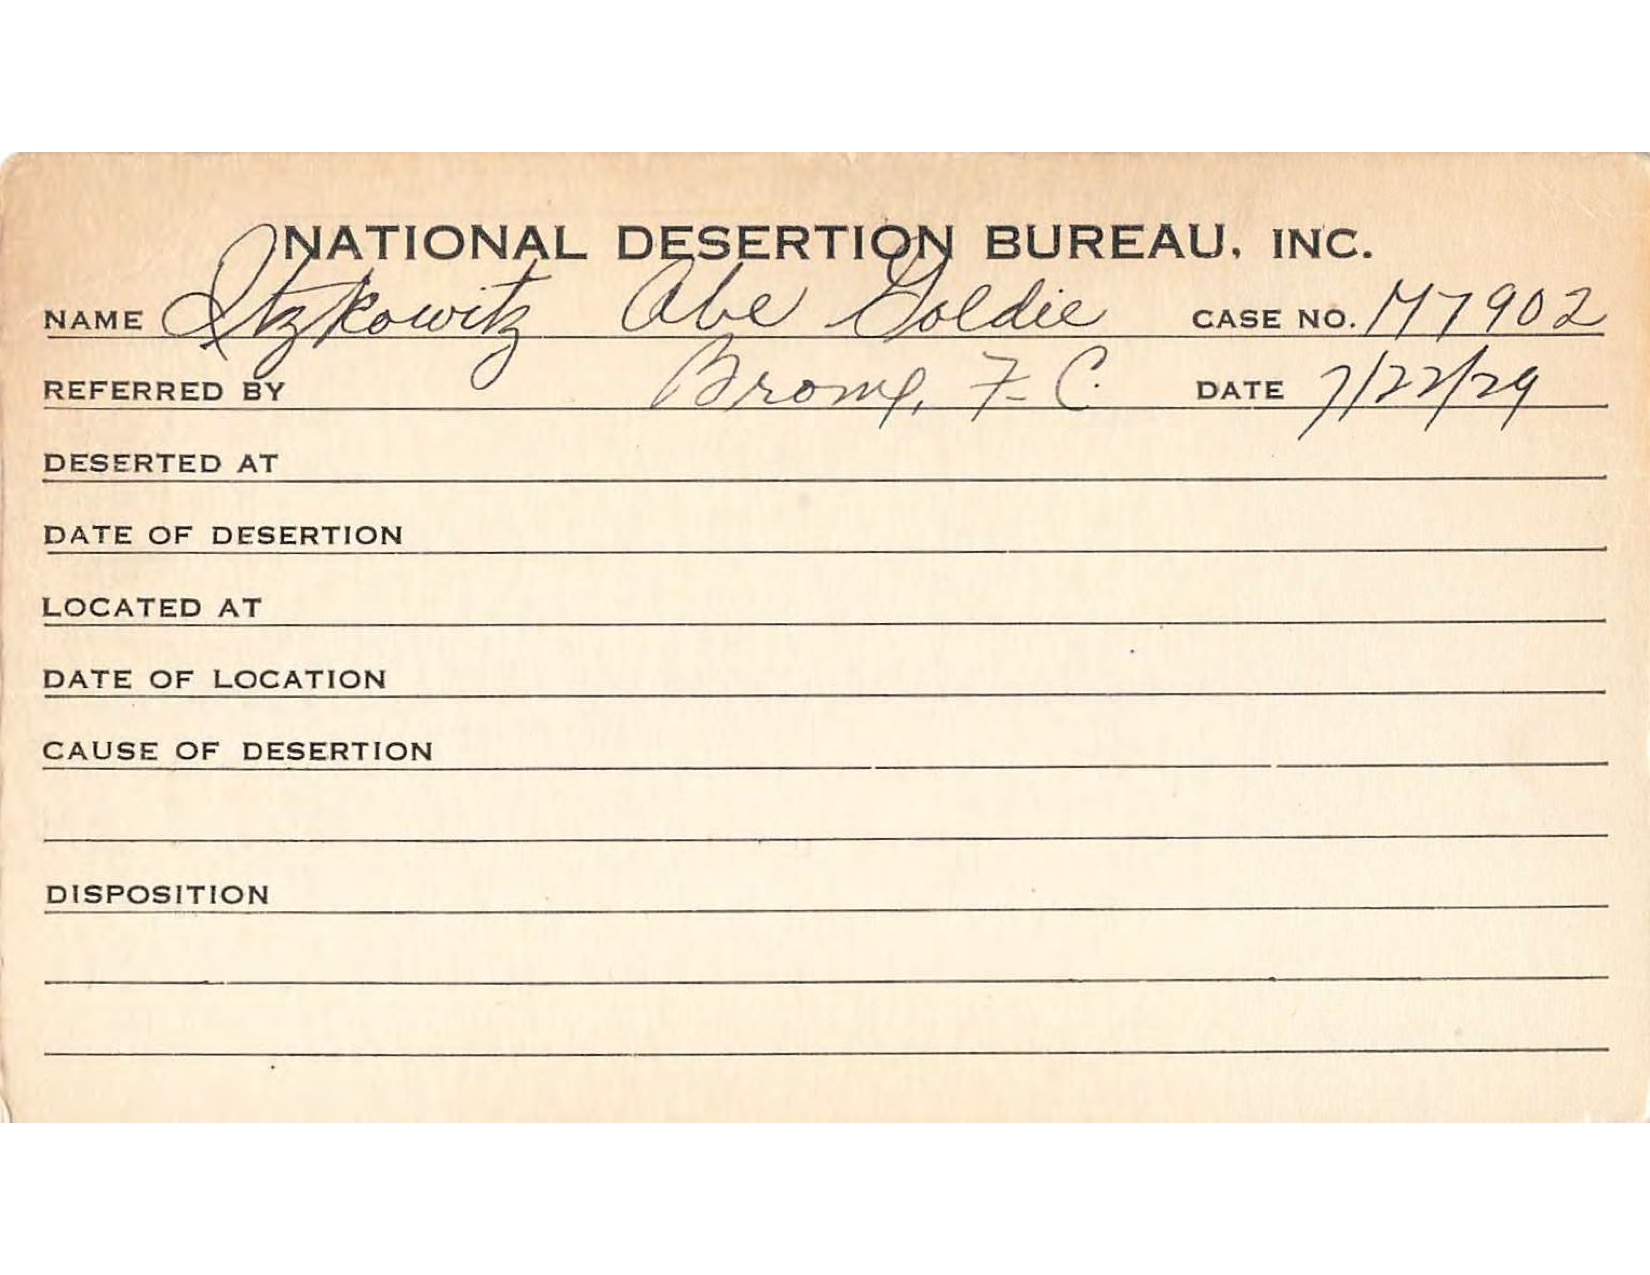 NATIONAL DESERTION BUREAU, INC.
NAME Itzkowitz Abe Goldie CASE NO. M7902
REFERRED BY Bronx, F. C. DATE 7/22/29
DESERTED AT
DATE OF DESERTION
LOCATED AT
DATE OF LOCATION
CAUSE OF DESERTION
DISPOSITION